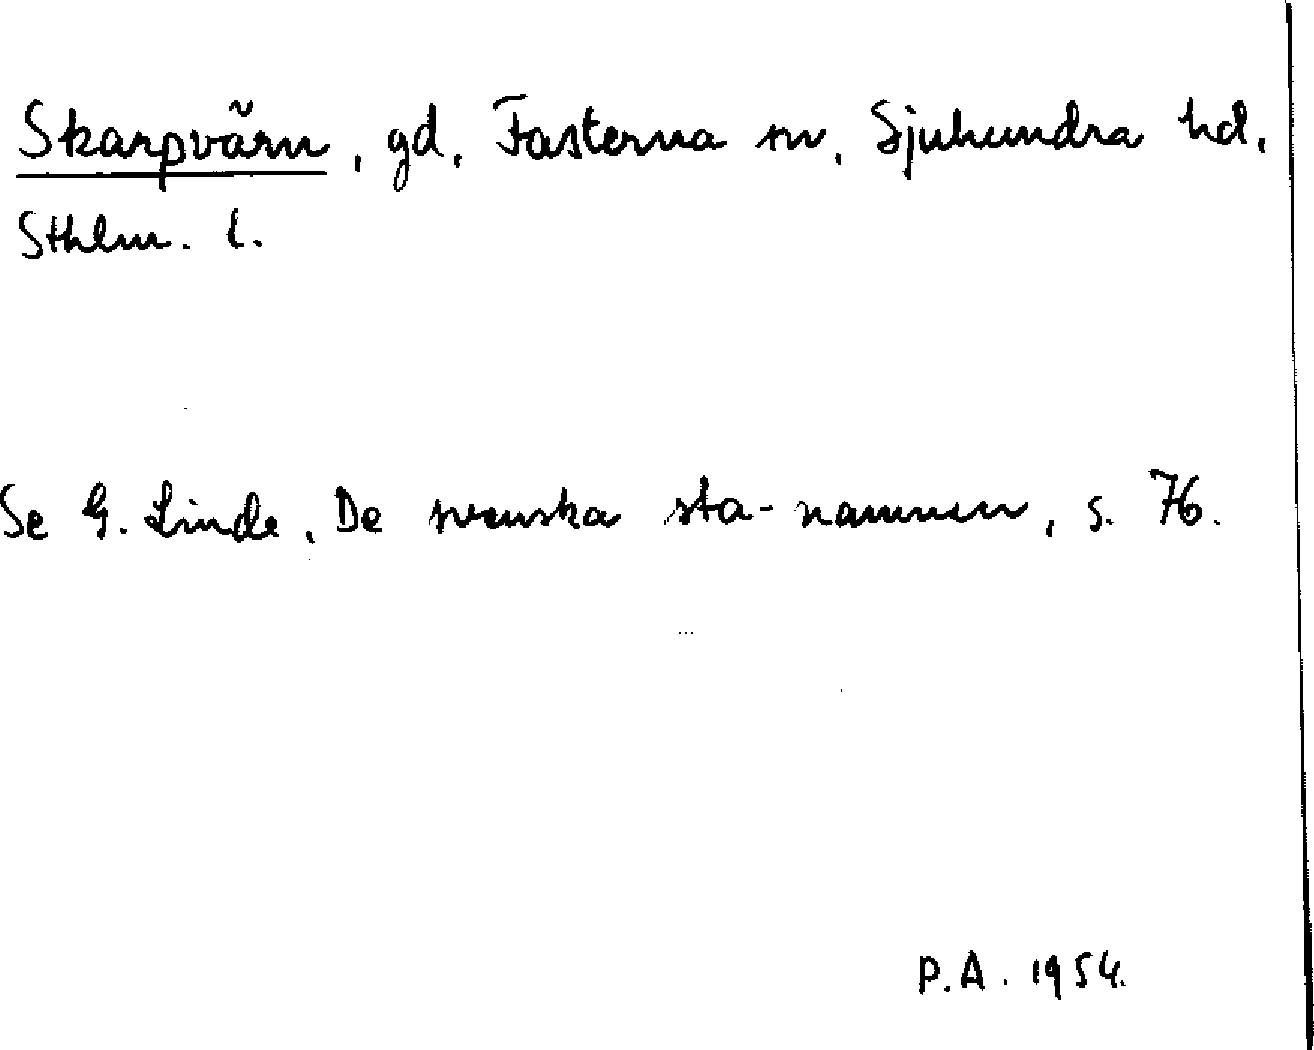 Skarpvärn, gd, Fasterna sn, Sjuhundra hd,
Sthlm. l.
Se G. Linde, De svenska sta-namnen, s. 76.
P.A. 1954.